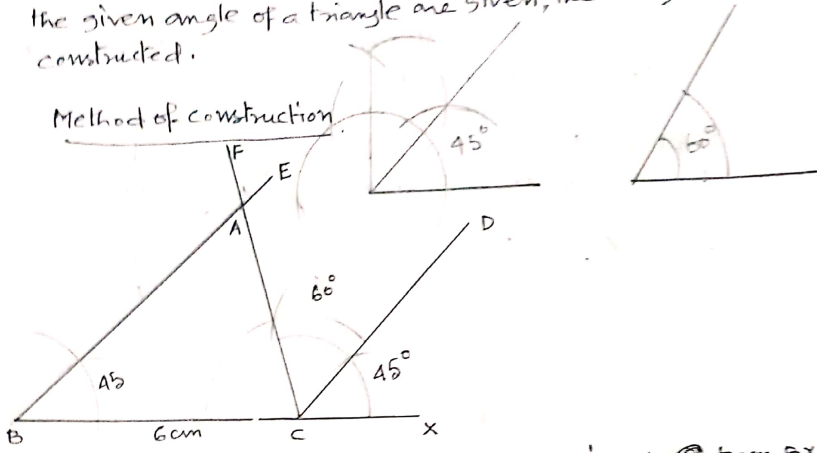 the given angle of a triangle are given,
constructed.
Method of construction
45°
60°
F
E
A
D
60°
45
45°
B
6cm
C
X